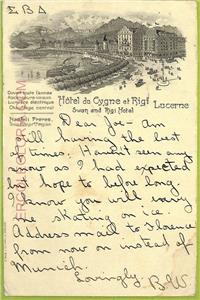 ΣΒΔ
Ouvert toute l'année
Lumière électrique
Chauffage central
Hôtel du Cygne et Rigi
Swan and Rigi Hotel
Lucerne
Dear Joe - Am
still having the best
of times. Haven't seen any
snow as I had expected
but hope to before long.
I know you will envy
me skating on ice.
Address mail to Florence
from now on instead of
Munich.
Lovingly B.W.